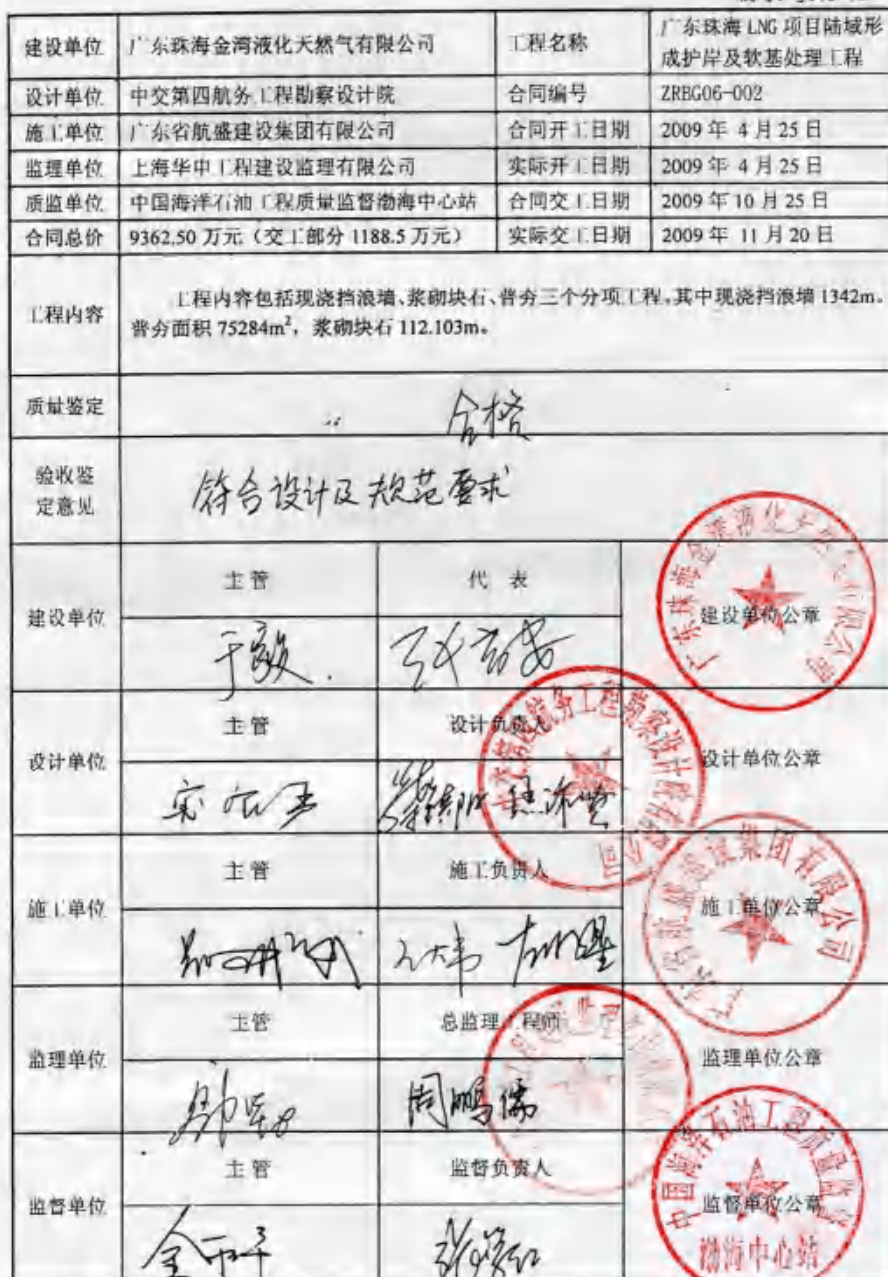 建设单位 广东珠海金湾液化天然气有限公司 工程名称 广东珠海 LNG 项目陆域形
成护岸及软基处理工程
设计单位 中交第四航务工程勘察设计院 合同编号 ZRBG06-002
施工单位 广东省航盛建设集团有限公司 合同开工日期 2009 年 4 月 25 日
监理单位 上海华申工程建设监理有限公司 实际开工日期 2009 年 4 月 25 日
质监单位 中国海洋石油工程质量监督渤海中心站 合同交工日期 2009 年 10 月 25 日
合同总价 9362.50 万元（交工部分 1188.5 万元） 实际交工日期 2009 年 11 月 20 日
工程内容 工程内容包括现浇挡浪墙、浆砌块石、普夯三个分项工程,其中现浇挡浪墙 1342m。
普夯面积 75284m²，浆砌块石 112.103m。
质量鉴定 合格
验收鉴
定意见
符合设计及规范要求
建设单位 主管 代 表 建设单位公章
广东珠海金湾液化天然气有限公司
于毅
设计单位 主管 设计负责人 设计单位公章
施工单位 主管 施工负责人 施工单位公章
广东省航盛建设集团有限公司
监理单位 主管 总监理工程师 监理单位公章
周鹏儒
监督单位 主管 监督负责人 监督单位公章
中国海洋石油工程质量监督
渤海中心站